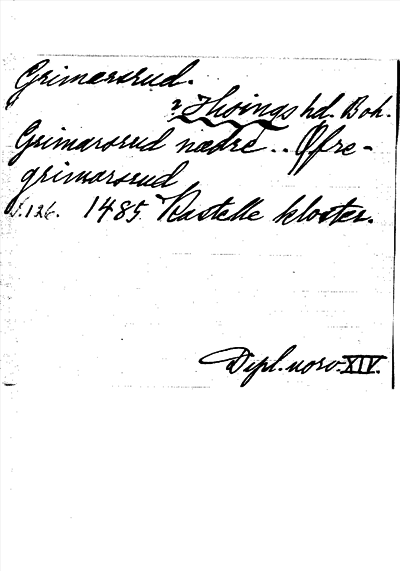 Grimarsrud.
? Thoings hd. Boh.
Grimarsrud nædre .. Øfre-
grimarsrud
S. 126. 1485. Kastelle kloster.
Dipl. norv. XIV.